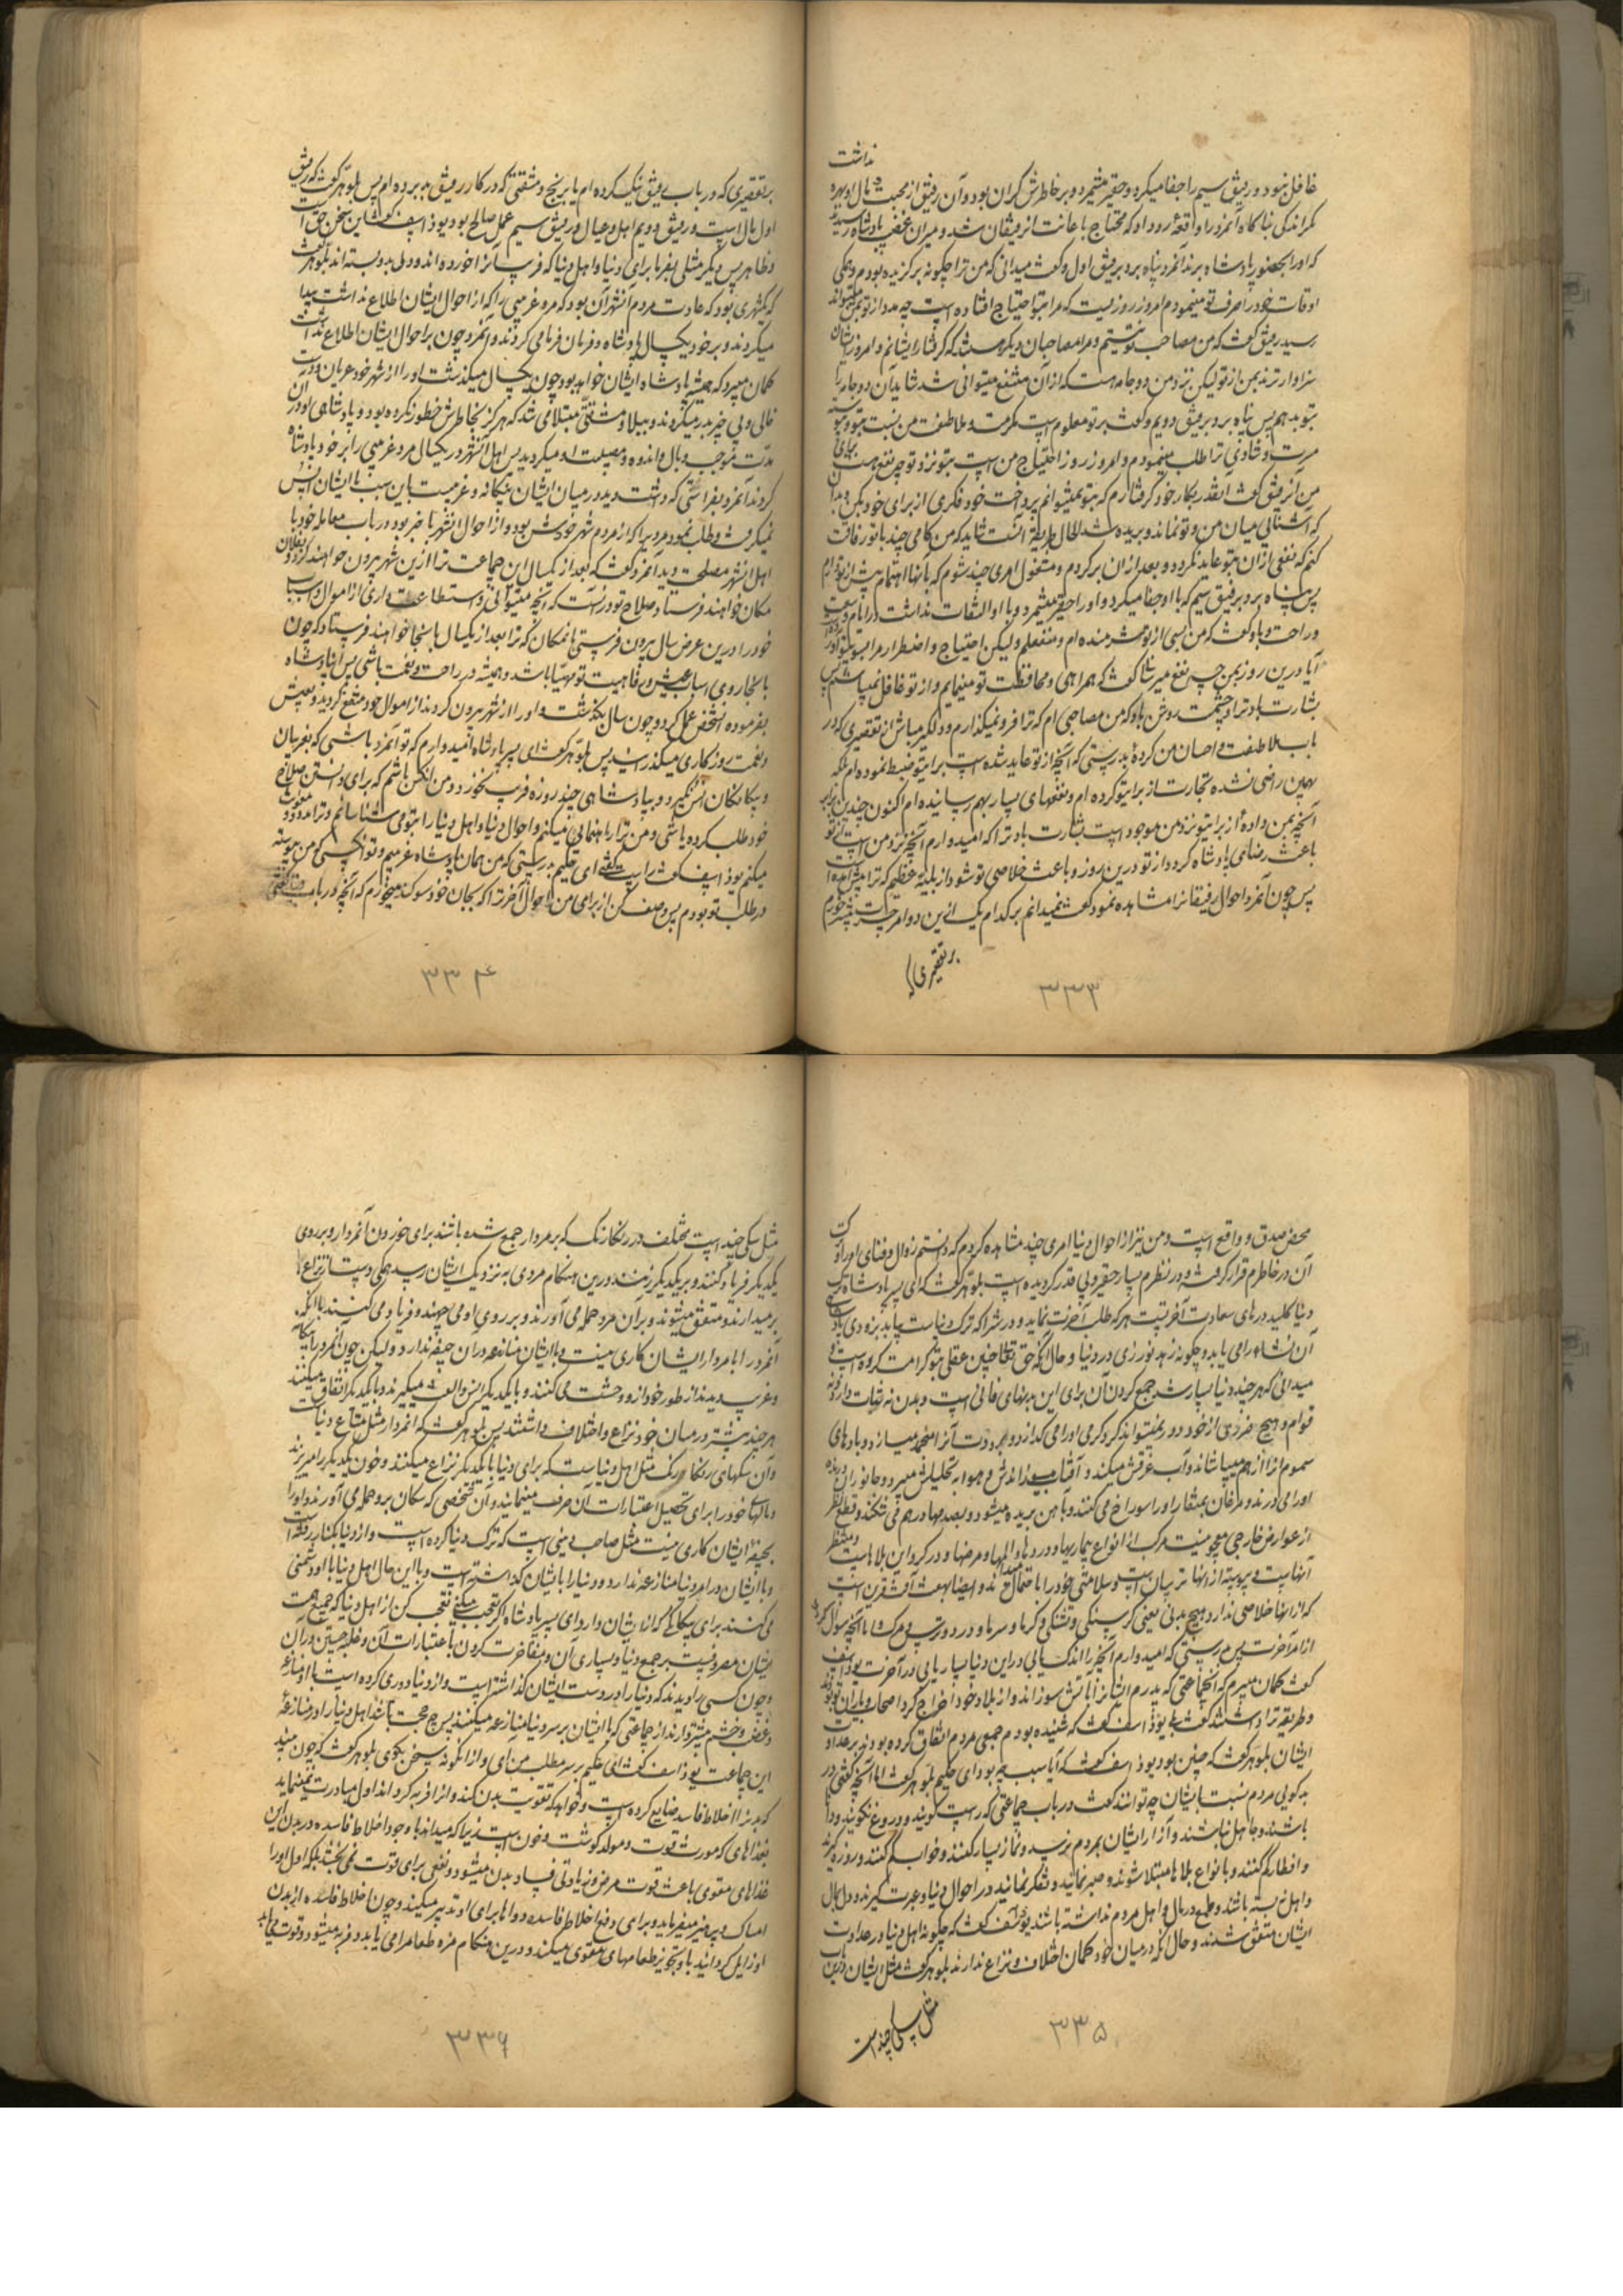 غافل نبود و رفیق سیم را جفا میکرد و حقیر میشمرد و بر خاطرش گران بود و آن رفیق از محبت و مال او بهره نداشت
مگر اندکی ناگاه آنمرد را واقعهٔ رو داد که محتاج باعانت آن رفیقان شد و میران غضب پادشاه رسیدند
که او را بحضور پادشاه برند آنمرد پناه برد برفیق اول و گفت میدانی که من ترا چگونه برگزیده بودم و همگی
اوقات خود را صرف تو مینمودم امروز روزیست که مرا بتو احتیاج افتاده است چه مدد از تو بمن میتواند
رسید رفیق گفت که من مصاحب تو نیستم و مرا مصاحبان دیگر هست که گرفتار ایشانم و امروز ایشان
سزاوارترند بمن از تو لیکن نزد من دو جامه هست که از آن منتفع میتوانی شد شاید آن دو جامه را
بتو بدهم پس پناه برد برفیق دویم و گفت بر تو معلوم است مکرمت و ملاطفت من نسبت بتو و پیوسته
مسرت و شادی ترا طلب مینمودم و امروز روز احتیاج من است بتو نزد تو چه نفع هست برای
من آن رفیق گفت آنقدر بکار خود گرفتارم که بتو نمیتوانم پرداخت خود فکری از برای خود بکن و بدان
که آشنائی میان من و تو نماند و بریده شد الحال طریقهٔ من غیر طریقهٔ تست شاید که من گامی چند با تو رفاقت
کنم که نفعی از آن بتو عاید نگردد و بعد از آن برگردم و مشغول امری چند شوم که بآنها اهتمام بیش از تو دارم
پس پناه برد برفیق سیم که با او جفا میکرد و او را حقیر میشمرد و با او التفات نداشت در ایام وسعت
و راحت و باو گفت که من بسی از تو شرمنده‌ام و منفعلم ولیکن احتیاج و اضطرار مرا بسوی تو آورده
آیا درین روز بمن چه نفع میرسانی گفت که همراهی و محافظت تو مینمایم و از تو غافل نمیباشم پس
بشارت باد ترا و چشمت روشن باد که من مصاحبی‌ام که ترا فرو نمیگذارم و دلگیر مباش از تقصیری که در
باب ملاطفت و احسان من کردهٔ بدرستی که آنچه از تو عاید شده است برای تو ضبط نموده‌ام بلکه
بهمین راضی نشده تجارتها از برای تو کرده‌ام و نفعهای بسیار بهم رسانیده‌ام اکنون چندین برابر
آنچه بمن دادهٔ از برای تو نزد من موجود است بشارت باد ترا که امیدوارم آنچه نزد من است از تو
باعث رضای پادشاه گردد از تو درین روز و باعث خلاصی تو شود از بلیهٔ عظیم که ترا پیش آمده است
پس چون آنمرد احوال رفیقان را مشاهده نمود گفت نمیدانم بر کدام یک ازین دو امر حسرت بیشتر خورم
بر تقصیری که
۳۳۳
بر تقصیری که در باب رفیق نیک کرده‌ام یا برنج و مشقتی که در کار رفیق بد برده‌ام پس بلوهر گفت که رفیق
اول مال است و رفیق دویم اهل و عیال و رفیق سیم عمل صالح بود یوذاسف گفت این سخن حق است
و ظاهر پس دیگر مثلی بفرما برای دنیا و اهل دنیا که فریب آنرا خورده‌اند و دل بدو بسته‌اند بلوهر گفت
که شهری بود که عادت مردم آنشهر آن بود که مرد غریبی را که از احوال ایشان اطلاع نداشت پیدا
میکردند و بر خود یکسال پادشاه و فرمان فرما می‌کردند و آنمرد چون بر احوال ایشان اطلاع نداشت
گمان میبرد که همیشه پادشاه ایشان خواهد بود چون یکسال میگذشت او را از شهر خود عریان و دست
خالی و بی‌چیز بدر میکردند و ببلا و مشقتی مبتلا می‌شد که هرگز بخاطرش خطور نکرده بود و پادشاهی او در آن
مدت موجب وبال و اندوه و مصیبت او میگردید پس اهل آنشهر در یکسال مرد غریبی را بر خود پادشاه
کردند آنمرد بفراستی که داشت دید در میان ایشان بیگانه و غریبست باین سبب با ایشان انس
نمیگرفت و طلب نمود مردی را که از مردم شهر خودش بود و از احوال آنشهر با خبر بود در باب معامله خود با
اهل آنشهر مصلحت دید آنمرد گفت که بعد از یکسال این جماعت ترا ازین شهر بیرون خواهند کرد و بفلان
مکان خواهند فرستاد صلاح تو در آنست که آنچه میتوانی و استطاعت داری از اموال و اسباب
خود را درین عرض سال بیرون فرستی بآنمکان که ترا بعد از یکسال بآنجا خواهند فرستاد که چون
بآنجا روی اسباب عیش و رفاهیت تو مهیا باشد و همیشه در راحت و نعمت باشی پس آن پادشاه
بفرموده آنشخص عمل کرد و چون سال بگذشت و او را از شهر بیرون کردند از اموال خود منتفع گردید و بعیش
و نعمت روزگاری میگذرانید پس بلوهر گفت ای پسر پادشاه امیدوارم که تو آنمرد باشی که بغریبان
و بیگانگان انس نگیرد و بپادشاهی چند روزه فریب نخورد و من آنکس باشم که برای دانستن صلاح
خود طلب کرده باشی و من ترا راهنمائی میکنم و احوال دنیا و اهل دنیا را بتو می‌شناسانم و ترا مدد و معونت
میکنم یوذاسف گفت راست گفتی ای حکیم بدرستی که من همان پادشاه غریبم و تو آنکسی که من پیوسته
در طلب تو بودم پس وصف کن از برای من احوال آخرت را که بجان خود سوگند میخورم که آنچه در باب دنیا گفتی
۳۳۴
محض صدق و واقع است و من نیز از احوال دنیا امری چند مشاهده کردم که دانستم زوال و فنای او را و ترک
آن در خاطرم قرار گرفته و در نظرم بسیار حقیر و بی‌قدر گردیده است بلوهر گفت که ای پسر پادشاه ترک
دنیا کلید درهای سعادت آخرتست هر که طلب آخرت نماید و درش را که ترک دنیاست بیابد بزودی پادشاهی
آن نشاه را می‌یابد و چگونه زهد نورزی در دنیا و حال آنکه حق تعالی چنین عقلی بتو کرامت کرده است و
میدانی که هر چند دنیا بسیار شد جمع کردن آن برای این بدنهای فانی است و بدن نه ثبات دارد و نه
قوام و هیچ ضرری از خود دور نمیتواند کرد گرمی او را می‌گدازد و برودت آنرا منجمد میسازد و بادهای
سموم آنرا از هم میپاشاند و آب غرقش میکند و آفتاب میسوزاندش و هوا به تحلیلش میبرد و جانوران درنده
او را میدرند و مرغان بمنقار او را سوراخ می‌کنند و بآهن بریده میشود و بصدمها درهم می‌شکند و قطع نظر
از عوارض خارجی معجونیست مرکب از انواع بیماریها و دردها و المها و مرضها و در گرو این بلاهاست و منتظر
آنهاست و پیوسته از آنها ترسان است و سلامتی خود را احتمال نمیدهد و ایضا بهفت آفت قرین است
که از آنها خلاصی ندارد هیچ بدنی یعنی گرسنگی و تشنگی و گرما و سرما و درد و ترس و مرگ و اما آنچه سؤال کردی
از امر آخرت پس بدرستی که امیدوارم آنچه را اندک یابی در این دنیا بسیار یابی در آخرت یوذاسف
گفت گمان میبرم که آنجماعتی که پدرم ایشان را بآتش سوزاند و از بلاد خود اخراج کرد اصحاب و یاران تو بودند
و طریقه ترا داشتند گفت بلی یوذاسف گفت که شنیده بودم جمیع مردم اتفاق کرده بودند بر عداوت
ایشان بلوهر گفت که چنین بود یوذاسف گفت که آیا سبب چه بود ای حکیم بلوهر گفت اما آنچه گفتی در
بدگوئی مردم نسبت بایشان چه توانند گفت در باب جماعتی که راست گویند و دروغ نگویند و دانا
باشند و جاهل نباشند و آزار ایشان بمردم نرسد و نماز بسیار کنند و خواب کم کنند و روزه گیرند
و افطار کم کنند و بانواع بلاها مبتلا شوند و صبر نمایند و تفکر نمایند در احوال دنیا و عبرت گیرند و دل بمال
و اهل نبسته باشند و طمع در مال و اهل مردم نداشته باشند یوذاسف گفت که چگونه اهل دنیا در عداوت
ایشان متفق شدند و حال آنکه در میان خود گمان اختلاف و نزاع ندارند بلوهر گفت مثل ایشان درین باب
مثل سگی چند است
۳۳۵
مثل سگی چند است مختلف در رنگارنگ که بر مردار جمع شده باشند برای خوردن آنمردار و بر روی
یکدیگر فریاد کنند و بر یکدیگر زنند درین هنگام مردی به نزدیک ایشان رسد همگی دست از نزاع
بر میدارند و متفق میشوند و بر آن مرد حمله می‌آورند و بر روی او می‌جهند و فریاد می‌کنند با آنکه
آنمرد را با مردار ایشان کاری نیست و با ایشان منازعه در آن جیفه ندارد ولیکن چون آنمرد را بیگانه
و غریب دیدند از طور خود از او وحشت می‌کنند و با یکدیگر انس و الفت میگیرند و با یکدیگر اتفاق میکنند
هر چند پیشتر در میان خود نزاع و اختلاف داشتند پس بلوهر گفت که آنمردار مثل متاع دنیاست
و آن سگهای رنگارنگ مثل اهل دنیاست که برای دنیا با یکدیگر نزاع میکنند و خون یکدیگر را میریزند
و مالهای خود را برای تحصیل اعتبارات آن صرف مینمایند و آن شخصی که سگان برو حمله می‌آورند و او را
بجیفهٔ ایشان کاری نیست مثل صاحب دینی است که ترک دنیا کرده است و از دنیا بکنار رفته است
و با ایشان در امر دنیا منازعه ندارد و دنیا را بایشان گذاشته است و با این حال اهل دنیا با او دشمنی
می‌کنند برای بیگانگی که از ایشان دارد ای پسر پادشاه اگر تعجب میکنی تعجب کن از اهل دنیا که جمیع همت
ایشان مصروفست بر جمع دنیا و بسیاری آن و مفاخرت کردن باعتبارات آن و غلبه جستن در آن
و چون کسی را دیدند که دنیا را در دست ایشان گذاشته است و از دنیا دوری کرده است با او منازعه
و غضب و خشم بیشتر دارند از جماعتی که با ایشان بر سر دنیا منازعه میکنند پس چه حجت باشد اهل دنیا را در منازعهٔ
این جماعت یوذاسف گفت ای حکیم بر سر مطلب من آی و از آنگونه سخن بگوی بلوهر گفت که چون بیند
که بدن را اخلاط فاسد ضایع کرده است و خواهد که تقویت بدن کند و آنرا فربه گرداند اول مبادرت نمینماید
بغذاهای که مورث قوت و مولد گوشت و خون است زیرا که میداند با وجود اخلاط فاسده در بدن این
غذاهای مقوی باعث قوت مرض و زیادتی فساد بدن میشود و نفعی برای قوت نمی‌بخشد بلکه اول او را
امساک و پرهیز میفرماید و برای دفع اخلاط فاسده دواها برای او تدبیر میکند و چون اخلاط فاسده از بدن
او زایل گردانید باو تجویز طعامهای مقوی میکند و درین هنگام مزه طعام را می‌یابد و فربه میشود و قوت می‌یابد
۳۳۶